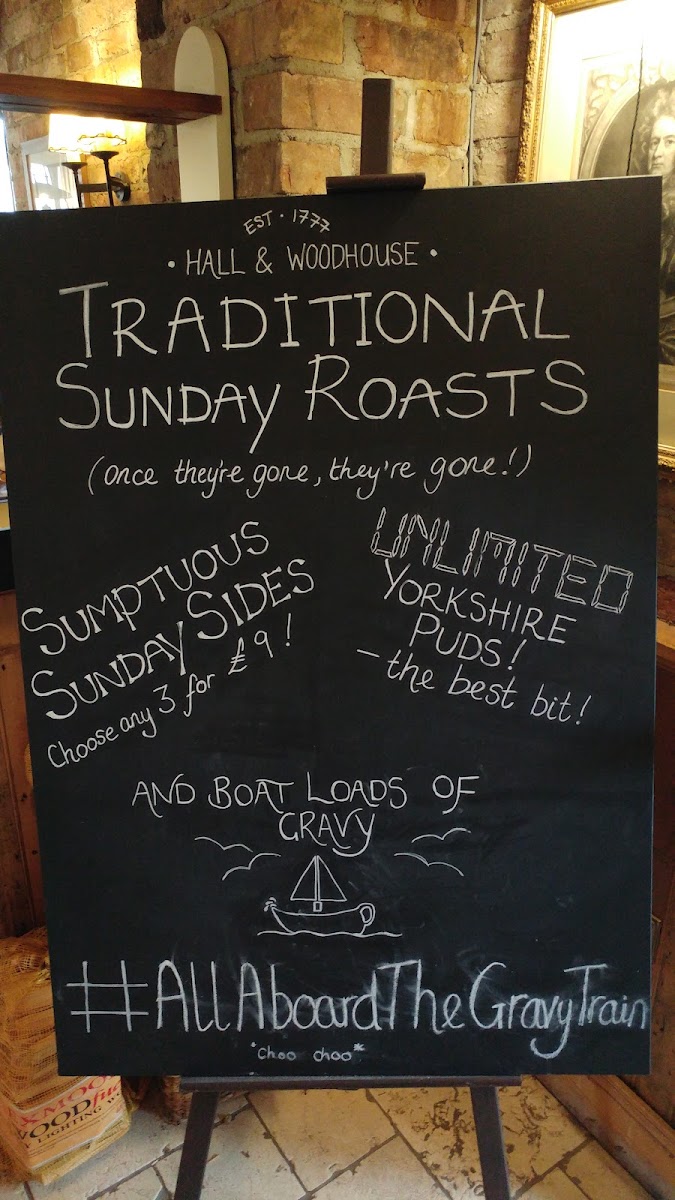 EST · 1777
· HALL & WOODHOUSE ·
TRADITIONAL
SUNDAY ROASTS
(Once they're gone, they're gone!)
SUMPTUOUS
SUNDAY SIDES
Choose any 3 for £9!
UNLIMITED
YORKSHIRE
PUDS!
- the best bit!
AND BOAT LOADS OF
GRAVY
#AllAboardTheGravyTrain
*choo choo*
WOOD